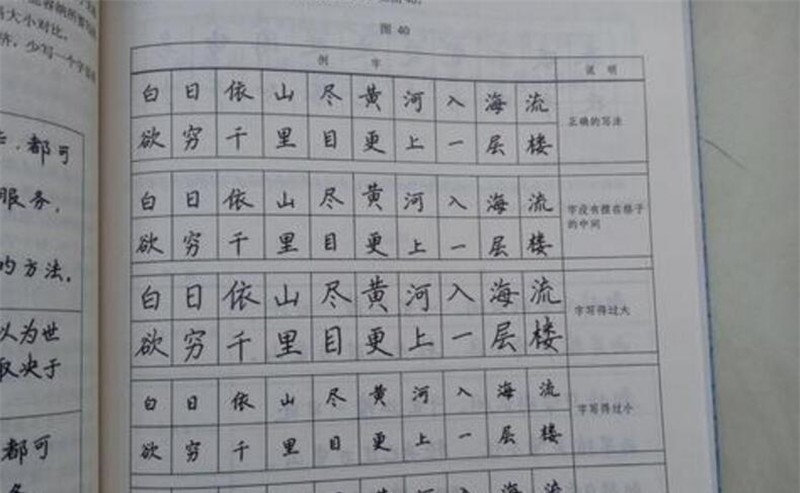 大小对比。
少写一个字
都可
服务，
的方法。
以为世
取决于
都可
图 40
例 字 说 明
白日依山尽黄河入海流
欲穷千里目更上一层楼
正确的写法
白日依山尽黄河入海流
欲穷千里目更上一层楼
字没有摆在格子
的中间
白日依山尽黄河入海流
欲穷千里目更上一层楼
字写得过大
白日依山尽黄河入海流
欲穷千里目更上一层楼
字写得过小